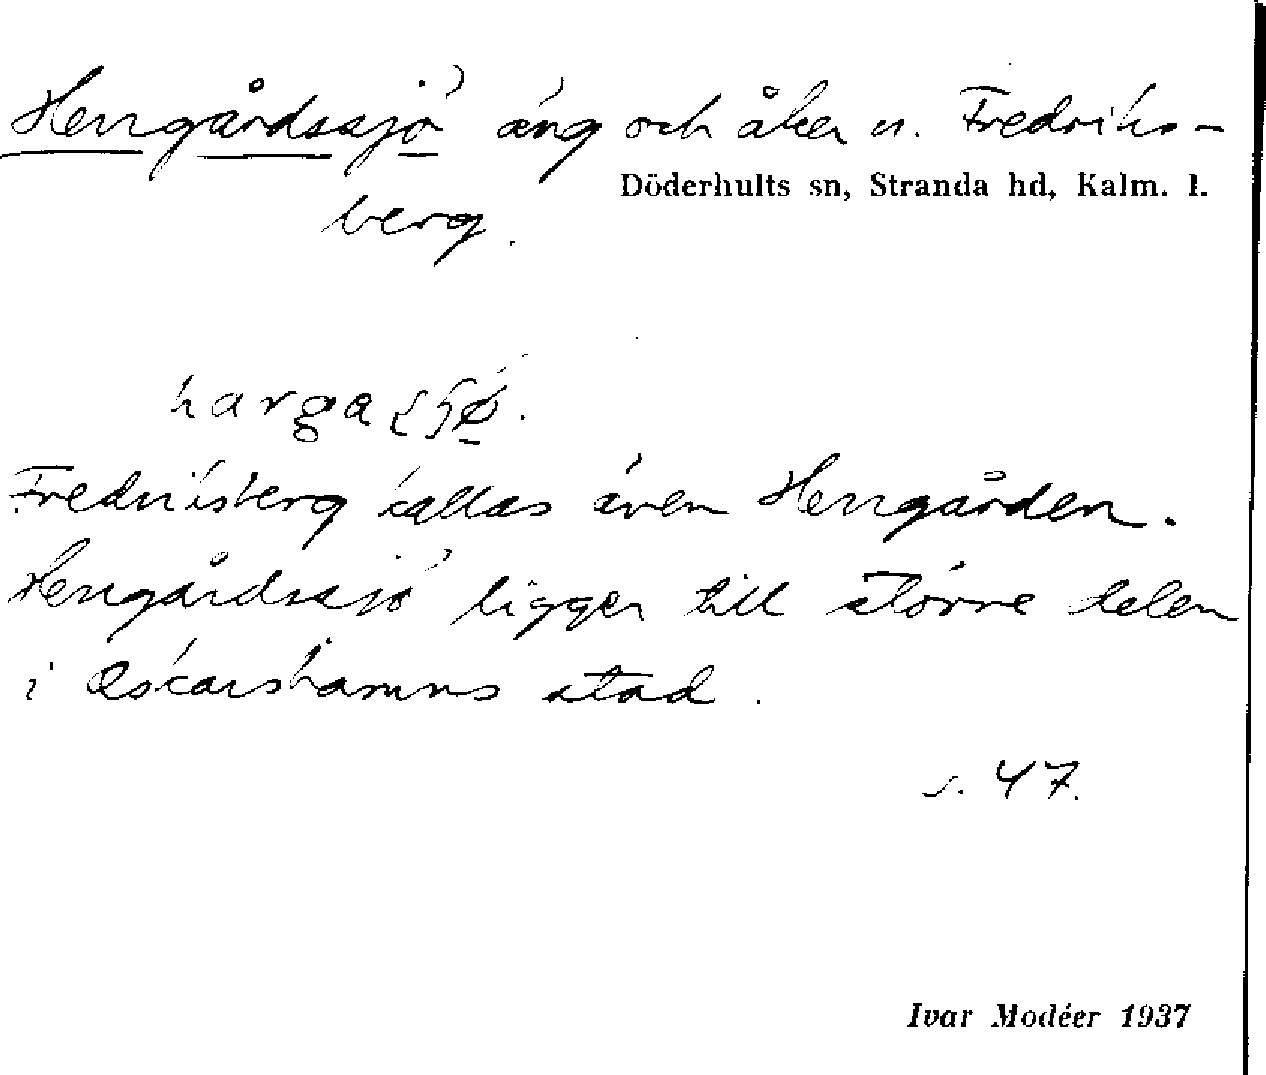 Herrgårdssjö äng och åker u. Fredriks-
Döderhults sn, Stranda hd, Kalm. l.
berg.
Fredriksberg kallas även Herrgården.
Herrgårdssjö ligger till större delen
i Oskarshamns stad.
s. 47.
Ivar Modéer 1937